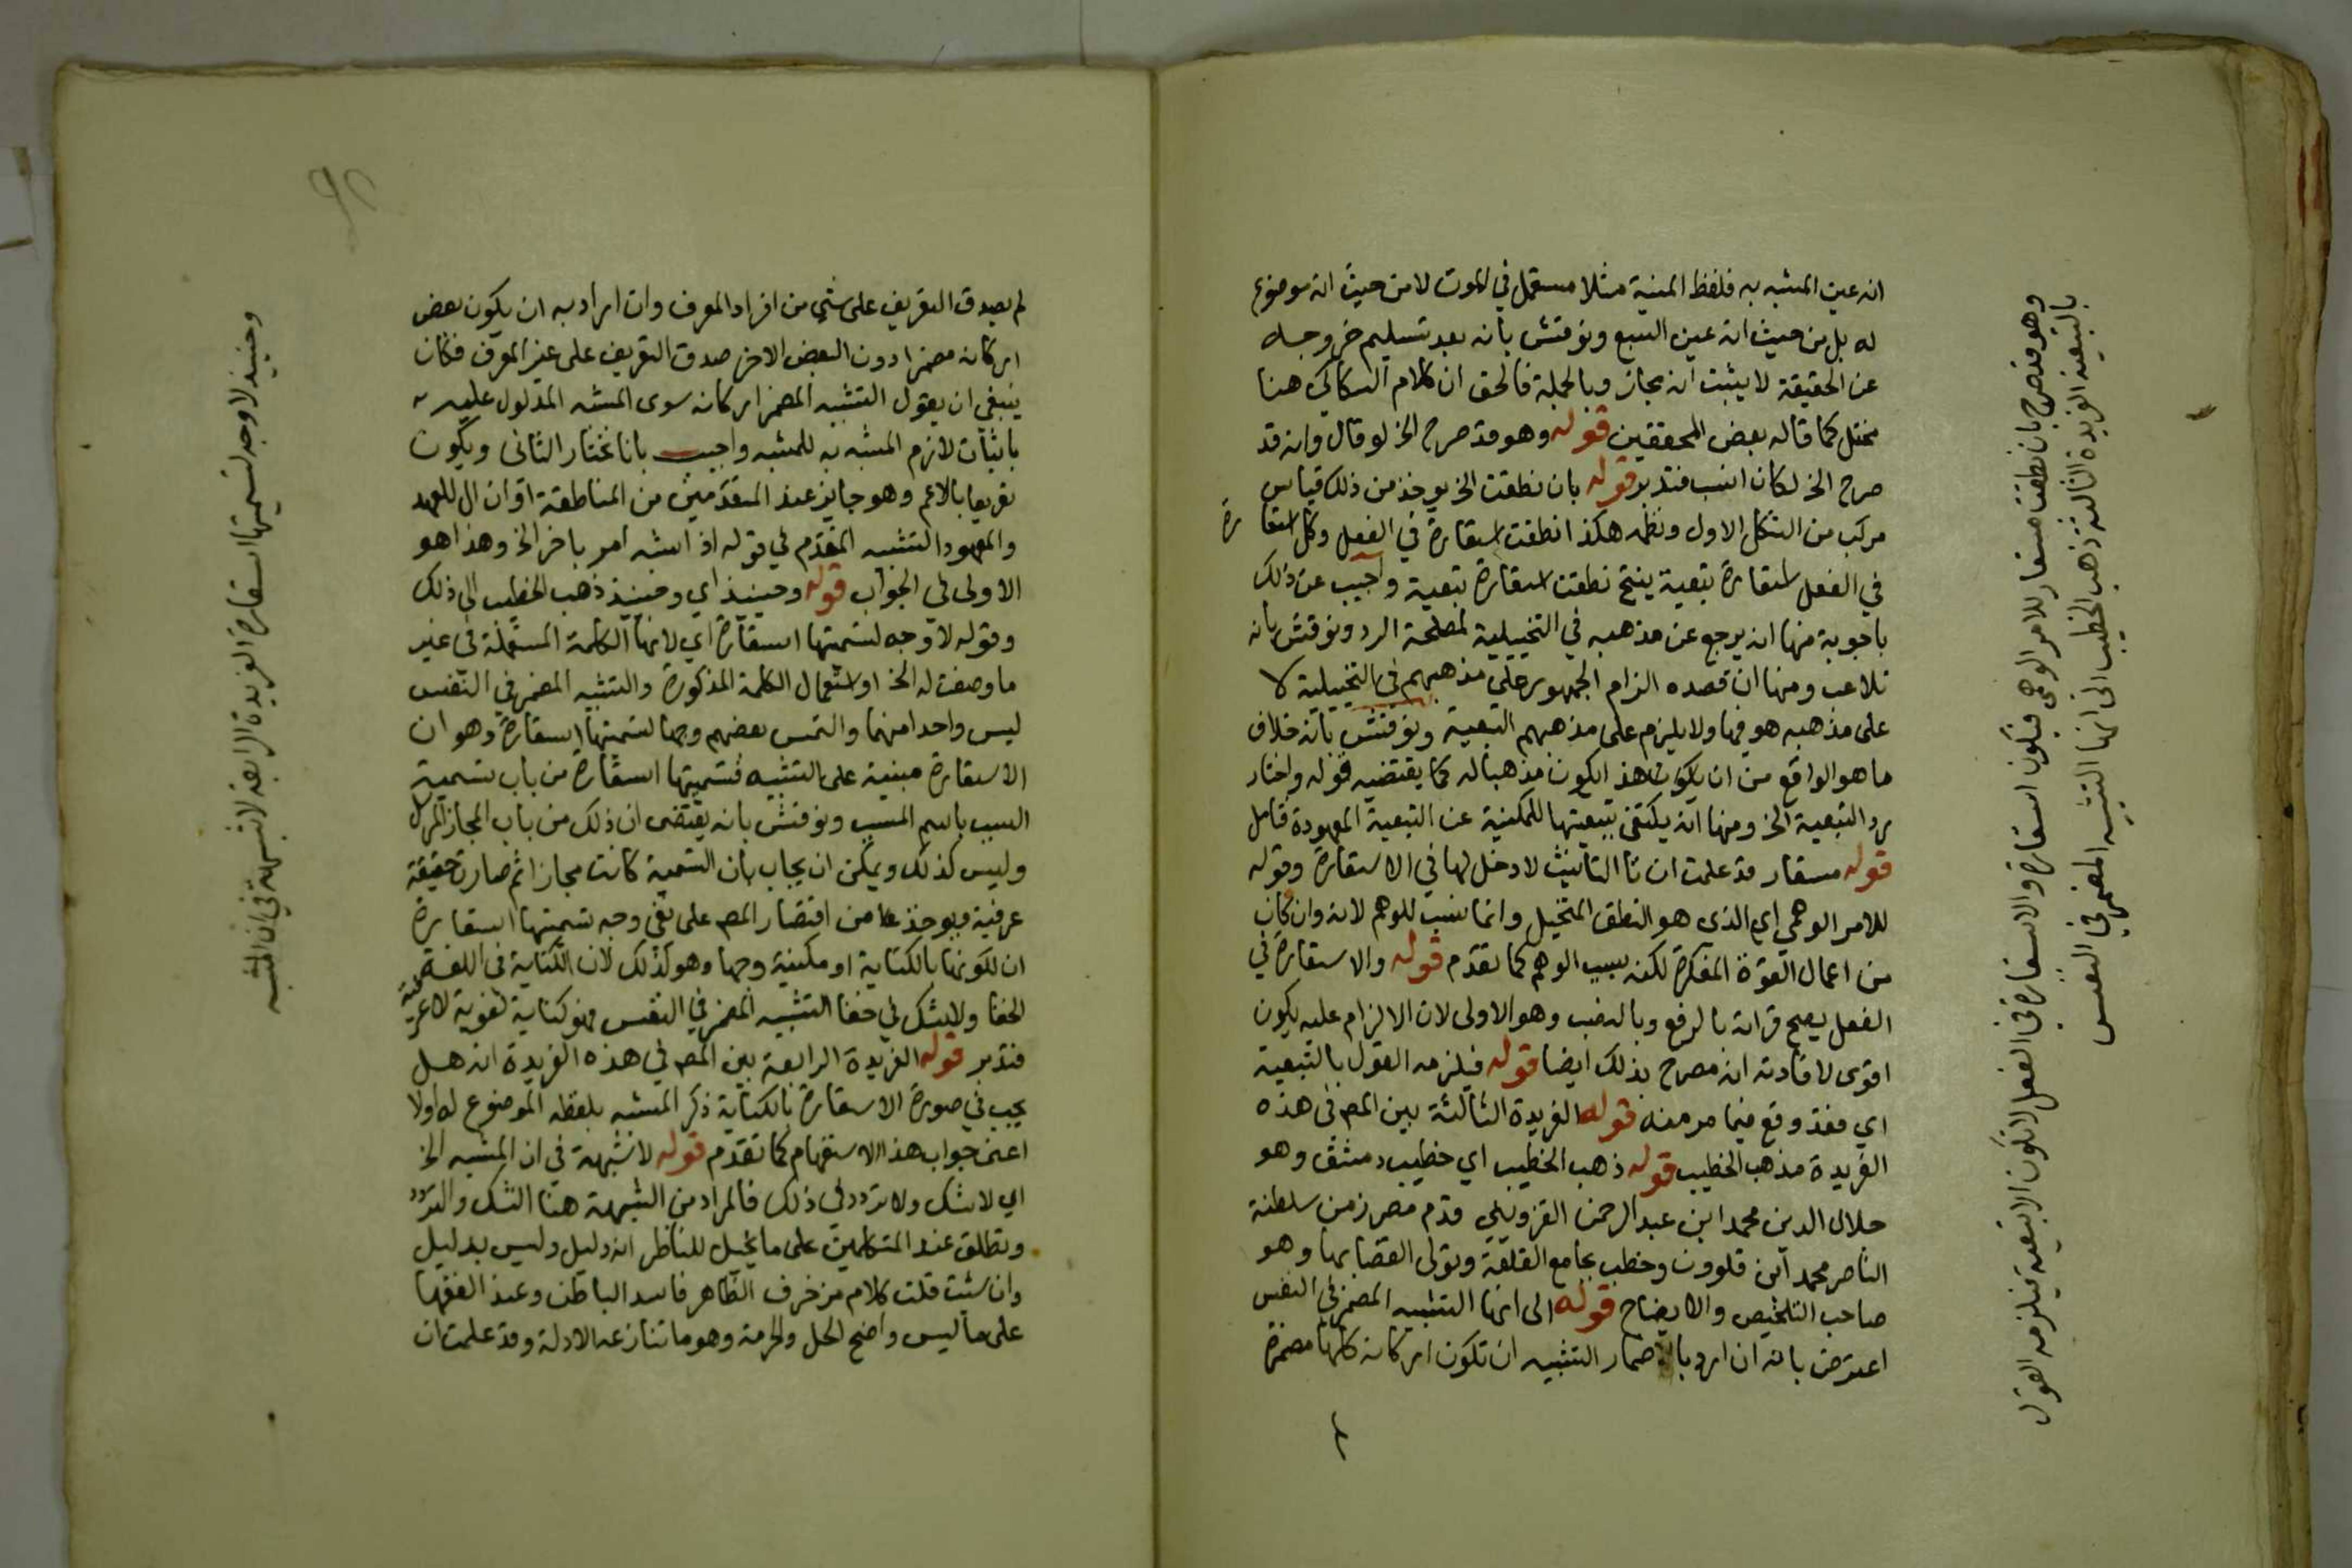 انه عين المشبه به فلفظ المنية مثلا مستعمل في الموت لا من حيث انه موضوع
له بل من حيث انه عين السبع ونوقش بانه بعد تسليم خروجه
عن الحقيقة لا يثبت انه مجاز وبالجملة فالحق ان كلام السكاكي هنا
مختل كما قاله بعض المحققين قوله وهو قد صرح الخ لو قال وانه قد
صرح الخ لكان انسب فتدبر قوله بان نطقت الخ يوخذ من ذلك قياس
مركب من الشكل الاول ونظمه هكذا نطقت استعارة في الفعل وكل استعارة
في الفعل استعارة تبعية ينتج نطقت استعارة تبعية واجيب عن ذلك
باجوبة منها انه يرجع عن مذهبه في التخييلية لمصلحة الرد ونوقش بانه
تلاعب ومنها ان قصده الزام الجمهور على مذهبهم في التخييلية لا
على مذهبه هو فيها ولا يلزم على مذهبهم التبعية ونوقش بانه خلاف
ما هو الواقع من ان يكون هذا لكون مذهبا له كما يقتضيه قوله واختار
رد التبعية الخ ومنها انه يكتفى بتبعيتها للمكنية عن التبعية المعهودة تامل
قوله مستعار قد علمت ان تا التانيث لا دخل لها في الاستعارة وقوله
للامر الوهمي اي الذي هو النطق المتخيل وانما نسب للوهم لانه وان كان
من اعمال القوة المفكرة لكنه بسبب الوهم كما تقدم قوله والاستعارة في
الفعل يصح قراته بالرفع وبالنصب وهو الاولى لان الالزام عليه يكون
اقوى لافادته انه مصرح بذلك ايضا قوله فيلزمه القول بالتبعية
اي فقد وقع فيما مر منه قوله الفريدة الثالثة بين المص في هذه
الفريدة مذهب الخطيب قوله ذهب الخطيب اي خطيب دمشق وهو
جلال الدين محمد ابن عبد الرحمن القزويني قدم مصر زمن سلطنة
الناصر محمد ابن قلوون وخطب بجامع القلعة وتولى القضا بها وهو
صاحب التلخيص والايضاح قوله الى انها التشبيه المضمر في النفس
اعترض بانه ان اريد باضمار التشبيه ان تكون اركانه كلها مضمرة
وهو قد صرح بان نطقت مستعار للامر الوهمي فيكون استعارة والاستعارة في الفعل لا تكون الا تبعية فيلزمه القول
بالتبعية الفريدة الثالثة ذهب الخطيب الى انها التشبيه المضمر في النفس
لم يصدق التعريف على شي من افراد المعرف وان اراد به ان يكون بعض
اركانه مضمرا دون البعض الاخر صدق التعريف على غير المعرف فكان
ينبغي ان يقول التشبيه المضمر اركانه سوى المشبه المدلول عليه
باثبات لازم المشبه به للمشبه واجيب بانا نختار الثاني ويكون
تعريفا بالاعم وهو جايز عند المتقدمين من المناطقة او ان ال للعهد
والمعهود التشبيه المتقدم في قوله اذا شبه امر باخر الخ وهذا هو
الاولى في الجواب قوله وحينيذ اي وحينيذ ذهب الخطيب الى ذلك
وقوله لا وجه لتسميتها استعارة اي لانها الكلمة المستعملة في غير
ما وضعت له الخ او استعمال الكلمة المذكورة والتشبيه المضمر في النفس
ليس واحدا منهما والتمس بعضهم وجها لتسميتها استعارة وهو ان
الاستعارة مبنية على التشبيه فتسميتها استعارة من باب تسمية
السبب باسم المسبب ونوقش بانه يقتضى ان ذلك من باب المجاز المرسل
وليس كذلك ويمكن ان يجاب بان التسمية كانت مجازا ثم صارت حقيقة
عرفية ويوخذ من اقتصار المص على نفي وجه تسميتها استعارة
ان لكونها بالكناية او مكنية وجها وهو كذلك لان الكناية في اللغة
الخفا ولا شك في خفا التشبيه المضمر في النفس فهو كناية لغوية لا عرفية
فتدبر قوله الفريدة الرابعة بين المص في هذه الفريدة انه هل
يجب في صورة الاستعارة بالكناية ذكر المشبه بلفظه الموضوع له اولا
اعنى جواب هذا الاستفهام كما تقدم قوله لا شبهة في ان المشبه الخ
اي لا شك ولا تردد في ذلك فالمراد من الشبهة هنا الشك والتردد
وتطلق عند المتكلمين على ما يخيل للناظر انه دليل وليس بدليل
وان شئت قلت كلام مزخرف الظاهر فاسد الباطن وعند الفقها
على ما ليس واضح الحل والحرمة وهو ما تنازعه الادلة وقد علمت ان
وحينيذ لا وجه لتسميتها استعارة الفريدة الرابعة لا شبهة في ان المشبه